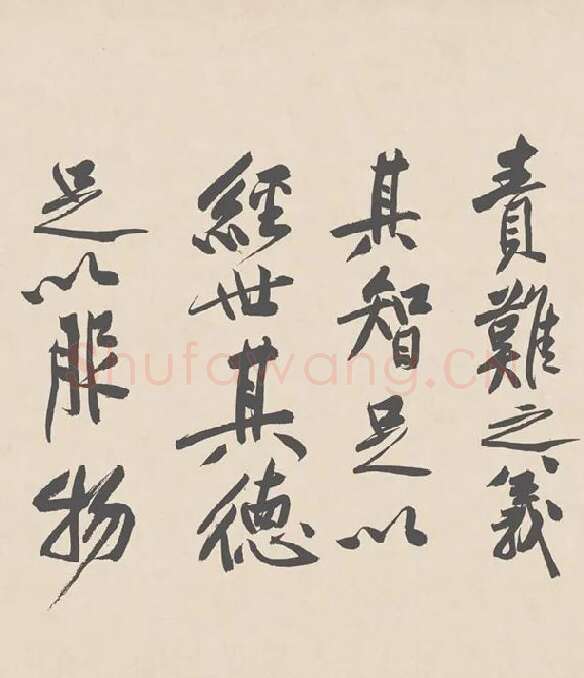 責難之義
其智足以
經世其德
足以服物
Shufawang.CN